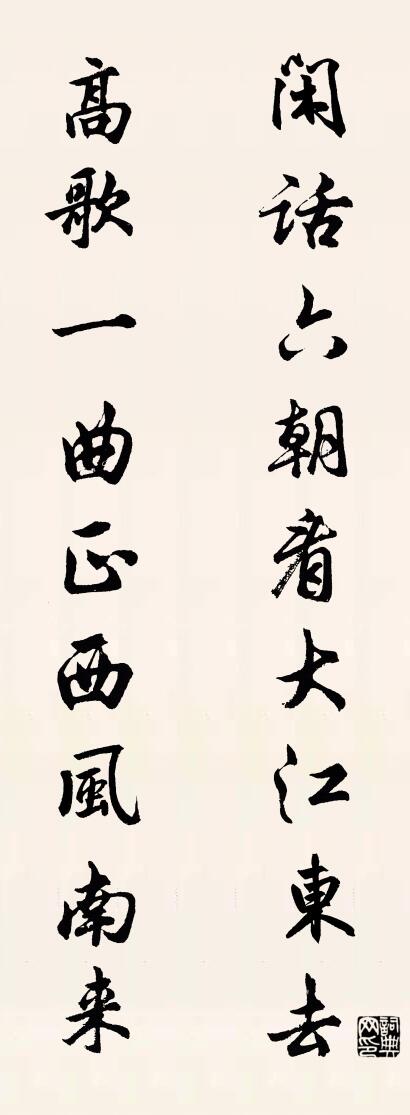 閑話六朝看大江東去
高歌一曲正西風南来
詞典網印